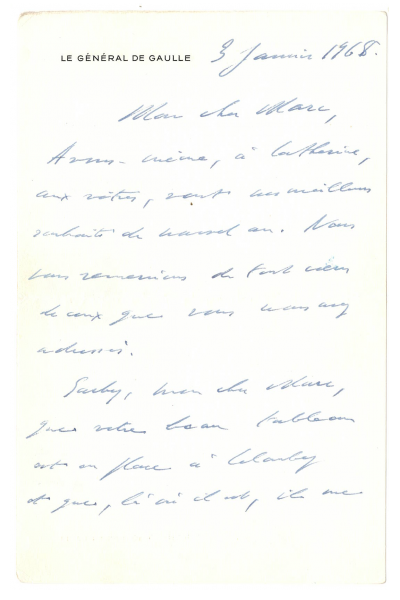 LE GÉNÉRAL DE GAULLE
3 Janvier 1968.
Mon cher Marc,
A vous-même, à Catherine,
aux vôtres, vont nos meilleurs
souhaits de nouvel an. Nous
vous remercions de tout cœur
de ceux que vous nous avez
adressés.
Sachez, mon cher Marc,
que votre beau tableau
est en place à Colombey
et que, là où il est, il me